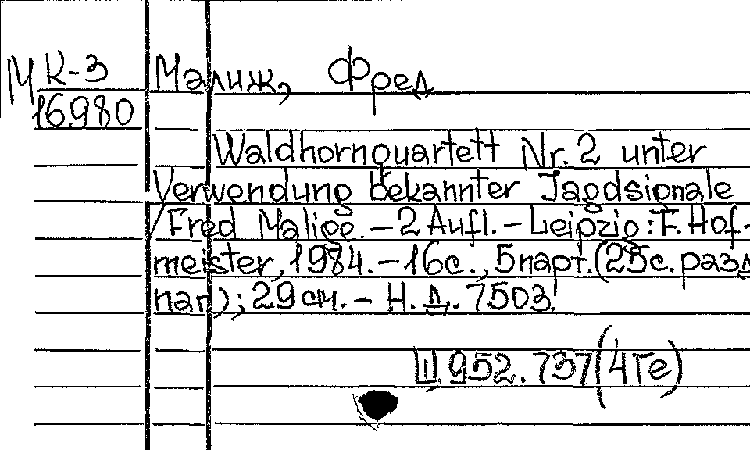 МК-3 Малиж, Фред
16980
Waldhornquartett Nr. 2 unter
Verwendung bekannter Jagdsignale
/ Fred Malige. – 2 Aufl. – Leipzig: F. Hof-
meister, 1984. – 16с., 5парт. (25с. разд.
паг.); 29см. – Н. д. 7503.
Ш 952.737(4Ге)